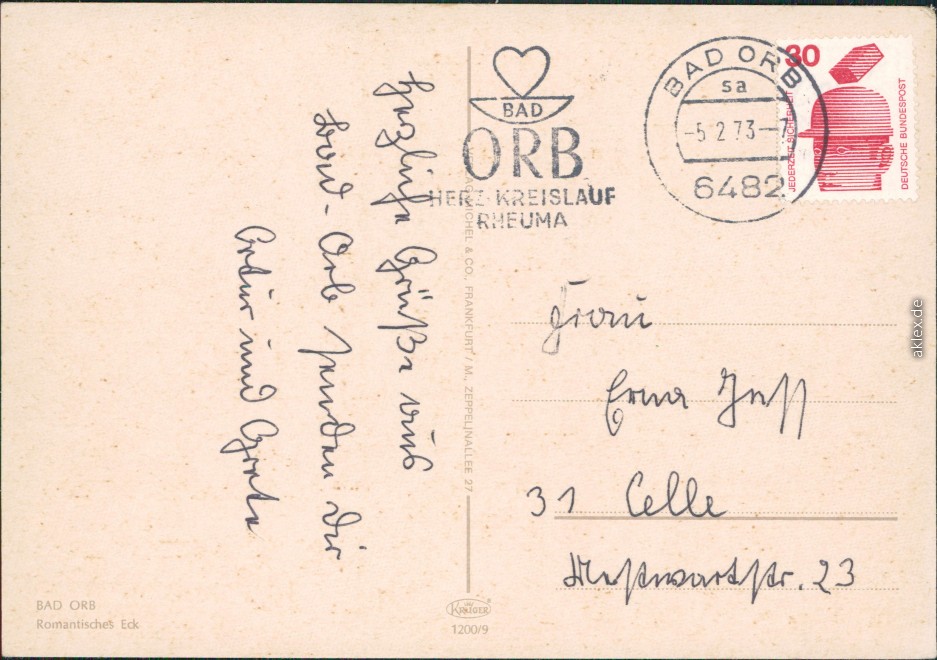 Herzliche Grüße aus
Bad-Orb senden Dir
Artur und Greta
BAD ORB
Romantisches Eck
BAD
ORB
HERZ-KREISLAUF
RHEUMA
BAD ORB
sa
-5.2.73-7
6482
30
JEDERZEIT SICHERHEIT
DEUTSCHE BUNDESPOST
MICHEL & CO., FRANKFURT / M., ZEPPELINALLEE 27
Frau
Erna
31 Celle
23
KRÜGER
1200/9
aklex.de